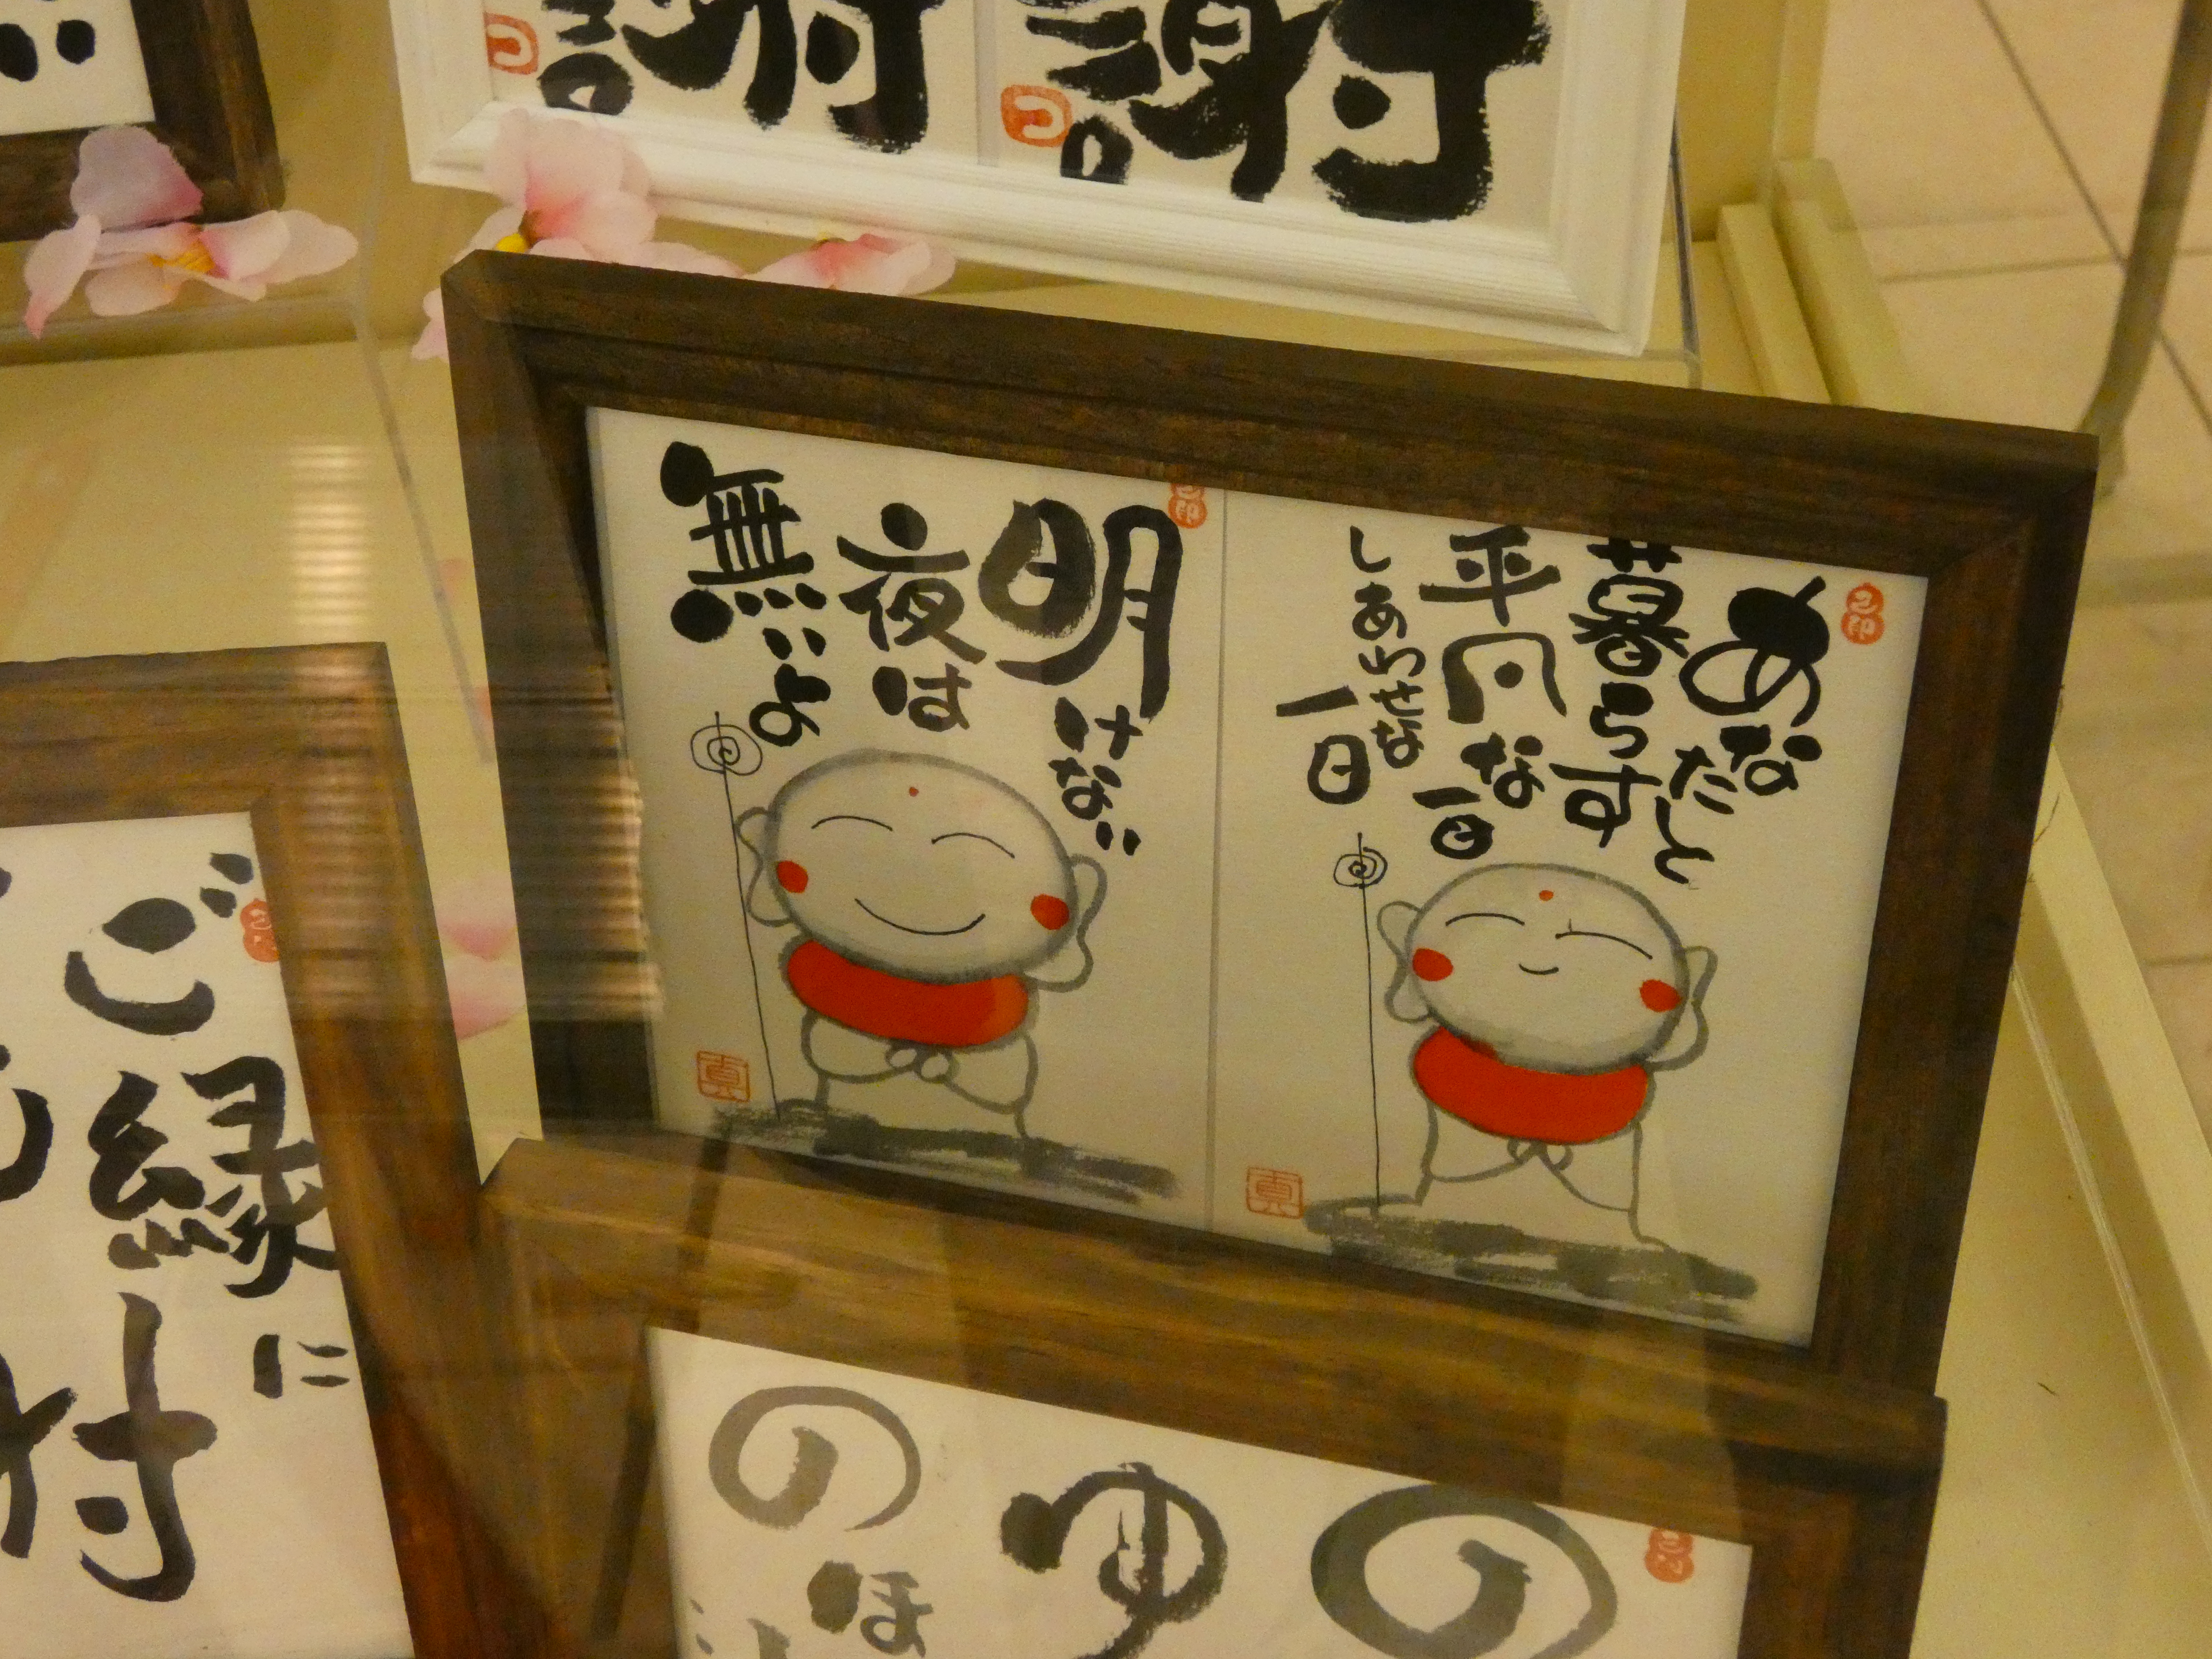 謝
謝
あなたと
暮らすす
平凡な一日
しあわせな
一日
明けない
夜は
無いよ
ご縁に
付
の
ゆ
の
ほ